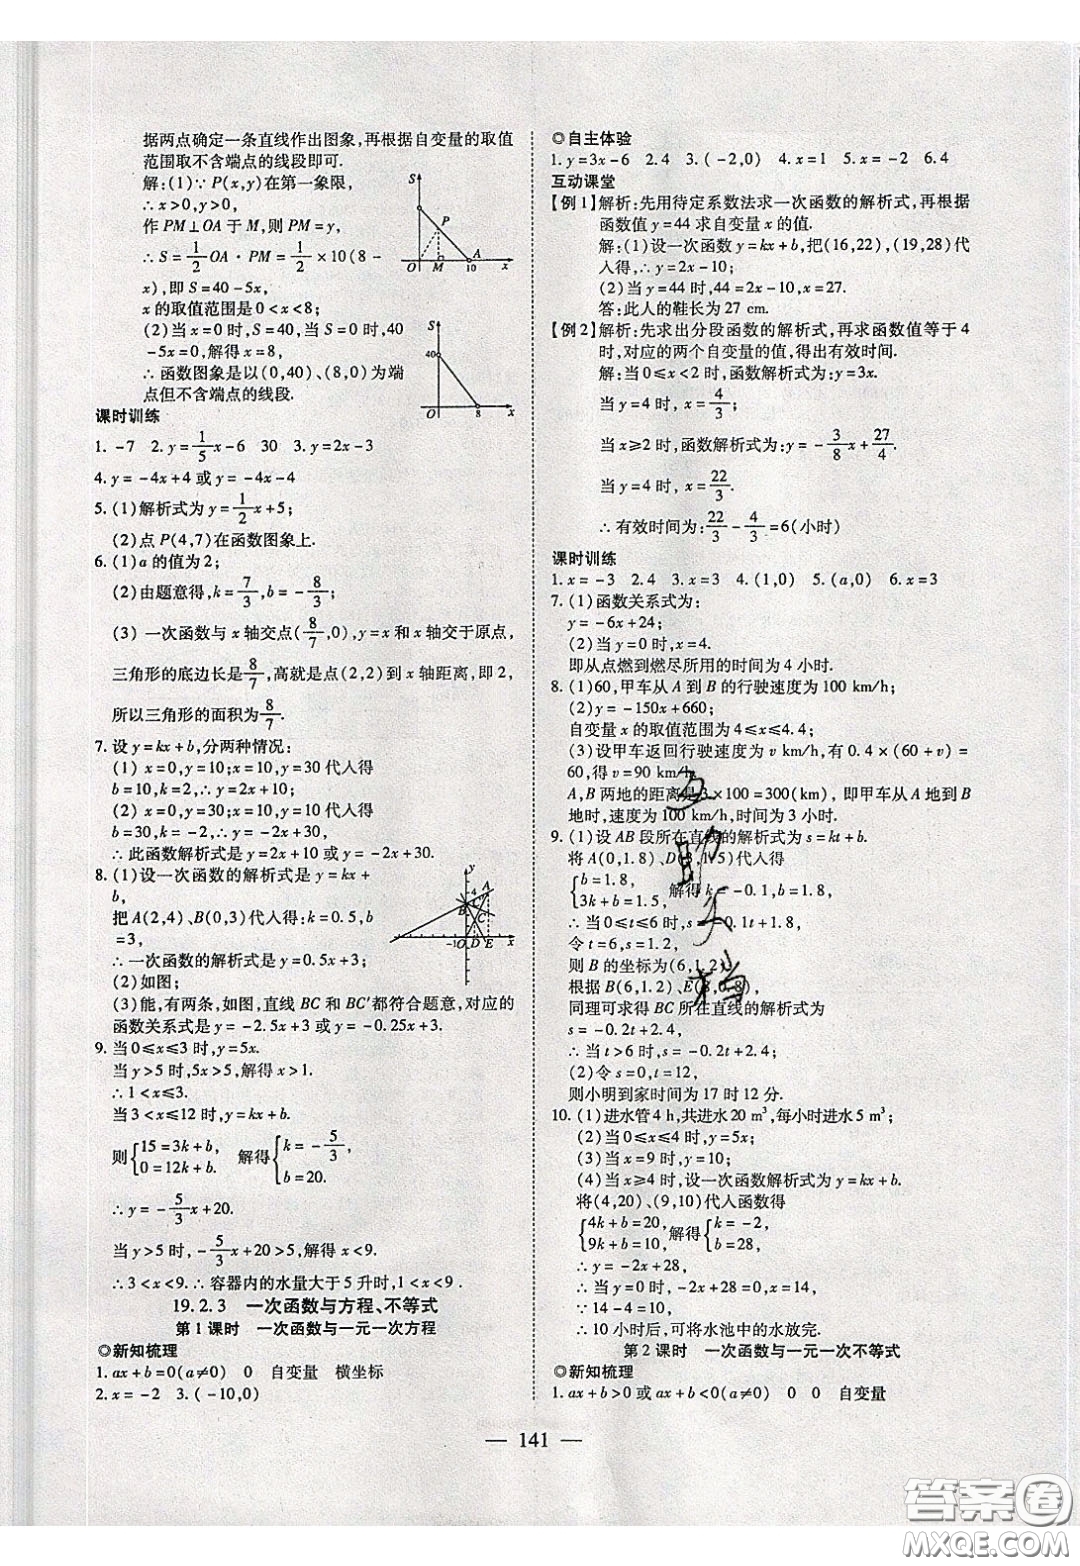 据两点确定一条直线作出图象,再根据自变量的取值
范围取不含端点的线段即可.
解:(1)∵P(x,y)在第一象限,
∴x>0,y>0,
作PM⊥OA于M,则PM=y,
∴S=1/2OA·PM=1/2×10(8-
x),即S=40-5x,
x的取值范围是0<x<8;
(2)当x=0时,S=40,当S=40
-5x=0时,解得x=8,
∴函数图象是以(0,40)、(8,0)为端
点但不含端点的线段.
S
P
A
O M 10 x
S
40
O 8 x
课时训练
1.-7 2.y=1/5x-6 30 3.y=2x-3
4.y=-4x+4或y=-4x-4
5.(1)解析式为y=1/2x+5;
(2)点P(4,7)在函数图象上.
6.(1)a的值为2;
(2)由题意得,k=7/3,b=-8/3;
(3)一次函数与x轴交点(8/7,0),y=x和x轴交于原点,
三角形的底边长是8/7,高就是点(2,2)到x轴距离,即2,
所以三角形的面积为8/7.
7.设y=kx+b,分两种情况:
(1)x=0,y=10;x=10,y=30代入得
b=10,k=2,∴y=2x+10;
(2)x=0,y=30;x=10,y=10代入得
b=30,k=-2,∴y=-2x+30,
∴此函数解析式是y=2x+10或y=-2x+30.
8.(1)设一次函数的解析式是y=kx+
b,
把A(2,4)、B(0,3)代入得:k=0.5,b
=3,
∴一次函数的解析式是y=0.5x+3;
(2)如图;
(3)能,有两条,如图,直线BC和BC′都符合题意,对应的
函数关系式是y=-2.5x+3或y=-0.25x+3.
y
4 A
B
C
-1 O D E x
9.当0≤x≤3时,y=5x.
当y>5时,5x>5,解得x>1,
∴1<x≤3.
当3<x≤12时,y=kx+b,
则{15=3k+b,0=12k+b. 解得{k=-5/3,b=20.
∴y=-5/3x+20.
当y>5时,-5/3x+20>5,解得x<9.
∴3<x<9.∴容器内的水量大于5升时,1<x<9.
19.2.3 一次函数与方程、不等式
第1课时 一次函数与一元一次方程
◎新知梳理
1.ax+b=0(a≠0) 0 自变量 横坐标
2.x=-2 3.(-10,0)
◎自主体验
1.y=3x-6 2.4 3.(-2,0) 4.x=1 5.x=-2 6.4
互动课堂
【例1】解析:先用待定系数法求一次函数的解析式,再根据
函数值y=44求自变量x的值.
解:(1)设一次函数y=kx+b,把(16,22),(19,28)代
入得,∴y=2x-10;
(2)当y=44时,2x-10=44,x=27.
答:此人的鞋长为27 cm.
【例2】解析:先求出分段函数的解析式,再求函数值等于4
时,对应的两个自变量的值,得出有效时间.
解:当0≤x<2时,函数解析式为:y=3x.
当y=4时,x=4/3;
当x≥2时,函数解析式为:y=-3/8x+27/4.
当y=4时,x=22/3.
∴有效时间为:22/3-4/3=6(小时)
课时训练
1.x=-3 2.4 3.x=3 4.(1,0) 5.(a,0) 6.x=3
7.(1)函数关系式为:
y=-6x+24;
(2)当y=0时,x=4.
即从点燃到燃尽所用的时间为4小时.
8.(1)60,甲车从A到B的行驶速度为100 km/h;
(2)y=-150x+660;
自变量x的取值范围为4≤x≤4.4;
(3)设甲车返回行驶速度为v km/h,有0.4×(60+v)=
60,得v=90 km/h.
A,B两地的距离是3×100=300(km),即甲车从A地到B
地时,速度为100 km/h,时间为3小时.
9.(1)设AB段所在直线的解析式为s=kt+b.
将A(0,1.8)、D(3,1.5)代入得
{b=1.8,3k+b=1.5,解得k=-0.1,b=1.8,
∴当0≤t≤6时,s=-0.1t+1.8,
令t=6,s=1.2,
则B的坐标为(6,1.2).
根据B(6,1.2)、E(8,0.8),
同理可求得BC所在直线的解析式为
s=-0.2t+2.4,
∴当t>6时,s=-0.2t+2.4;
(2)令s=0,t=12,
则小明到家时间为17时12分.
10.(1)进水管4 h,共进水20 m³,每小时进水5 m³;
(2)当0≤x≤4时,y=5x;
(3)当x=9时,y=10;
(4)当x≥4时,设一次函数的解析式为y=kx+b,
将(4,20)、(9,10)代入函数得
{4k+b=20,9k+b=10,解得{k=-2,b=28,
∴y=-2x+28,
∴当y=0时,-2x+28=0,x=14,
∵14-4=10,
∴10小时后,可将水池中的水放完.
第2课时 一次函数与一元一次不等式
◎新知梳理
1.ax+b>0或ax+b<0(a≠0) 0 0 自变量
— 141 —
答案圈
MXQE.COM